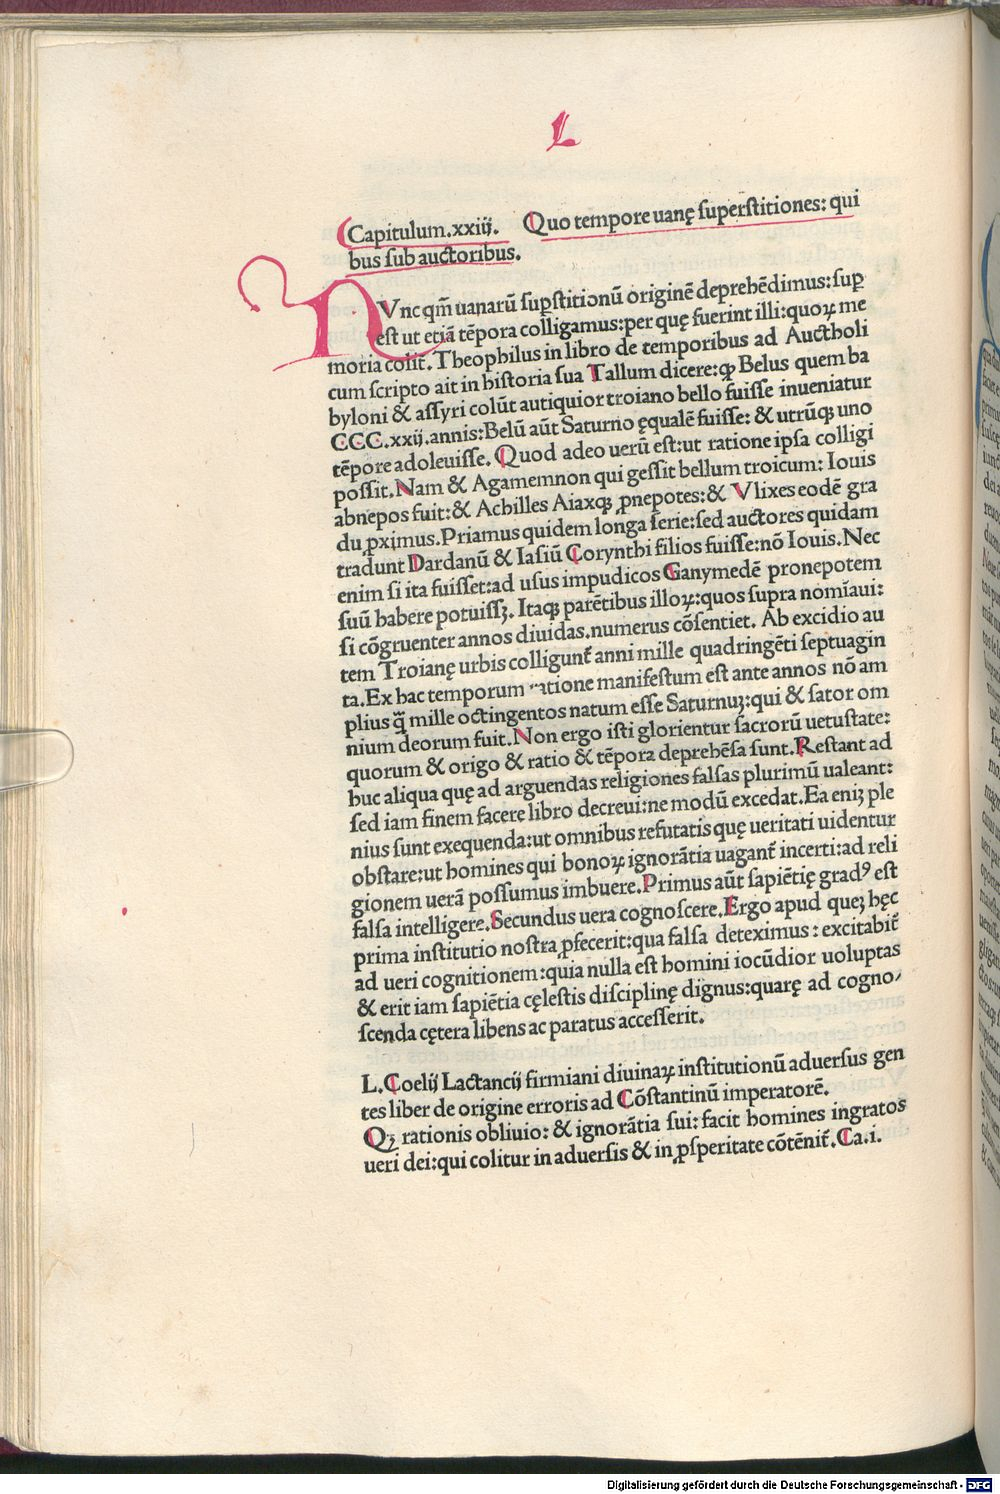 L
Capitulum.xxiij. Quo tempore uanę superstitiones: qui
bus sub auctoribus.
NVnc qm̄ uanarū supstitionū originē deprehēdimus: sup
est ut etiā tēpora colligamus: per quę fuerint illi: quoꝝ me
moria colit̄. Theophilus in libro de temporibus ad Auctholi
cum scripto ait in historia sua Tallum dicere: ꝙ Belus quem ba
byloni & assyri colūt autiquior troiano bello fuisse inueniatur
CCC.xxij. annis: Belū aūt Saturno ęqualē fuisse: & utrūqꝫ uno
tēpore adoleuisse. Quod adeo uerū est: ut ratione ipsa colligi
possit. Nam & Agamemnon qui gessit bellum troicum: Iouis
abnepos fuit: & Achilles Aiaxqꝫ ꝓnepotes: & Vlixes eodē gra
du ꝓximus. Priamus quidem longa serie: sed auctores quidam
tradunt Dardanū & Iasiū Corynthi filios fuisse: nō Iouis. Nec
enim si ita fuisset: ad usus impudicos Ganymedē pronepotem
suū habere potuissꝫ. Itaqꝫ parētibus illoꝝ: quos supra nomīaui:
si cōgruenter annos diuidas. numerus cōsentiet. Ab excidio au
tem Troianę urbis colligunt̄ anni mille quadringēti septuagin
ta. Ex hac temporum ratione manifestum est ante annos nō am
plius q̄ mille octingentos natum esse Saturnuꝫ: qui & sator om
nium deorum fuit. Non ergo isti glorientur sacrorū uetustate:
quorum & origo & ratio & tēpora deprehēsa sunt. Restant ad
huc aliqua quę ad arguendas religiones falsas plurimū ualeant:
sed iam finem facere libro decreui: ne modū excedat. Ea eniꝫ ple
nius sunt exequenda: ut omnibus refutatis quę ueritati uidentur
obstare: ut homines qui bonoꝝ ignorātia uagant̄ incerti: ad reli
gionem uerā possumus imbuere. Primus aūt sapiētię gradꝰ est
falsa intelligere. Secundus uera cognoscere. Ergo apud queꝫ hęc
prima institutio nostra ꝓfecerit: qua falsa deteximus: excitabit̄
ad ueri cognitionem: quia nulla est homini iocūdior uoluptas
& erit iam sapiētia cęlestis disciplinę dignus: quarę ad cogno/
scenda cętera libens ac paratus accesserit.
L. Coelij Lactancij firmiani diuinaꝝ institutionū aduersus gen
tes liber de origine erroris ad Cōstantinū imperatorē.
Qꝫ rationis obliuio: & ignorātia sui: facit homines ingratos
ueri dei: qui colitur in aduersis & in ꝓsperitate cōtēnit̄. Ca.i.
Digitalisierung gefördert durch die Deutsche Forschungsgemeinschaft - DFG